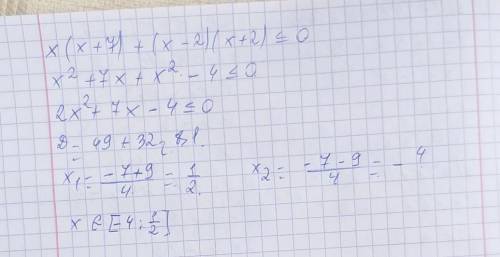 x(x+7)+(x-2)(x+2)≤0
x²+7x+x²-4≤0
2x²+7x-4≤0
D=49+32=81.
x₁=(-7+9)/4=1/2. x₂=(-7-9)/4=-4
x∈[-4;1/2]